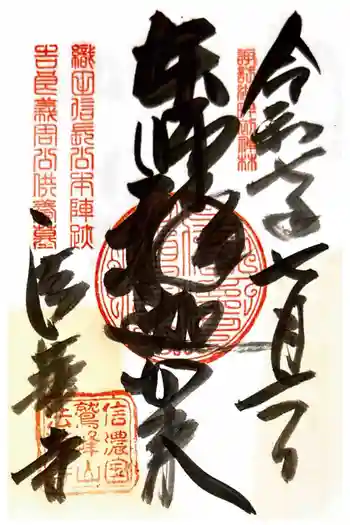 令和七年七月
本師釈迦如来
織田信長公本陣跡
吉良義周公供養墓
法華寺
信濃国
鷲峰山
法華寺